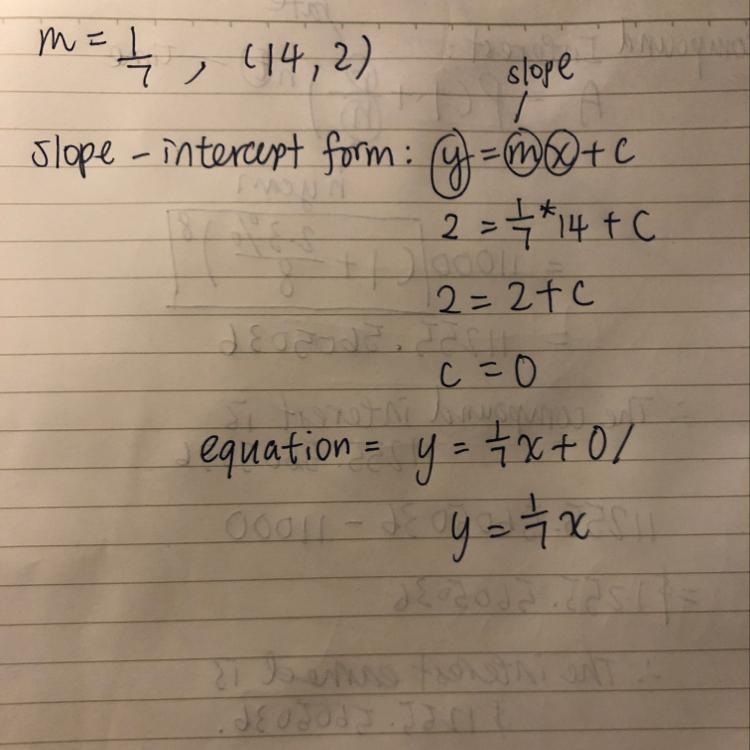 m = 1/7 , (14, 2)
slope
slope - intercept form: y = mx + c
2 = 1/7 * 14 + C
2 = 2 + C
C = 0
equation = y = 1/7 x + 0 /
y = 1/7 x